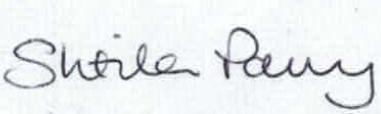 Sheila Parry